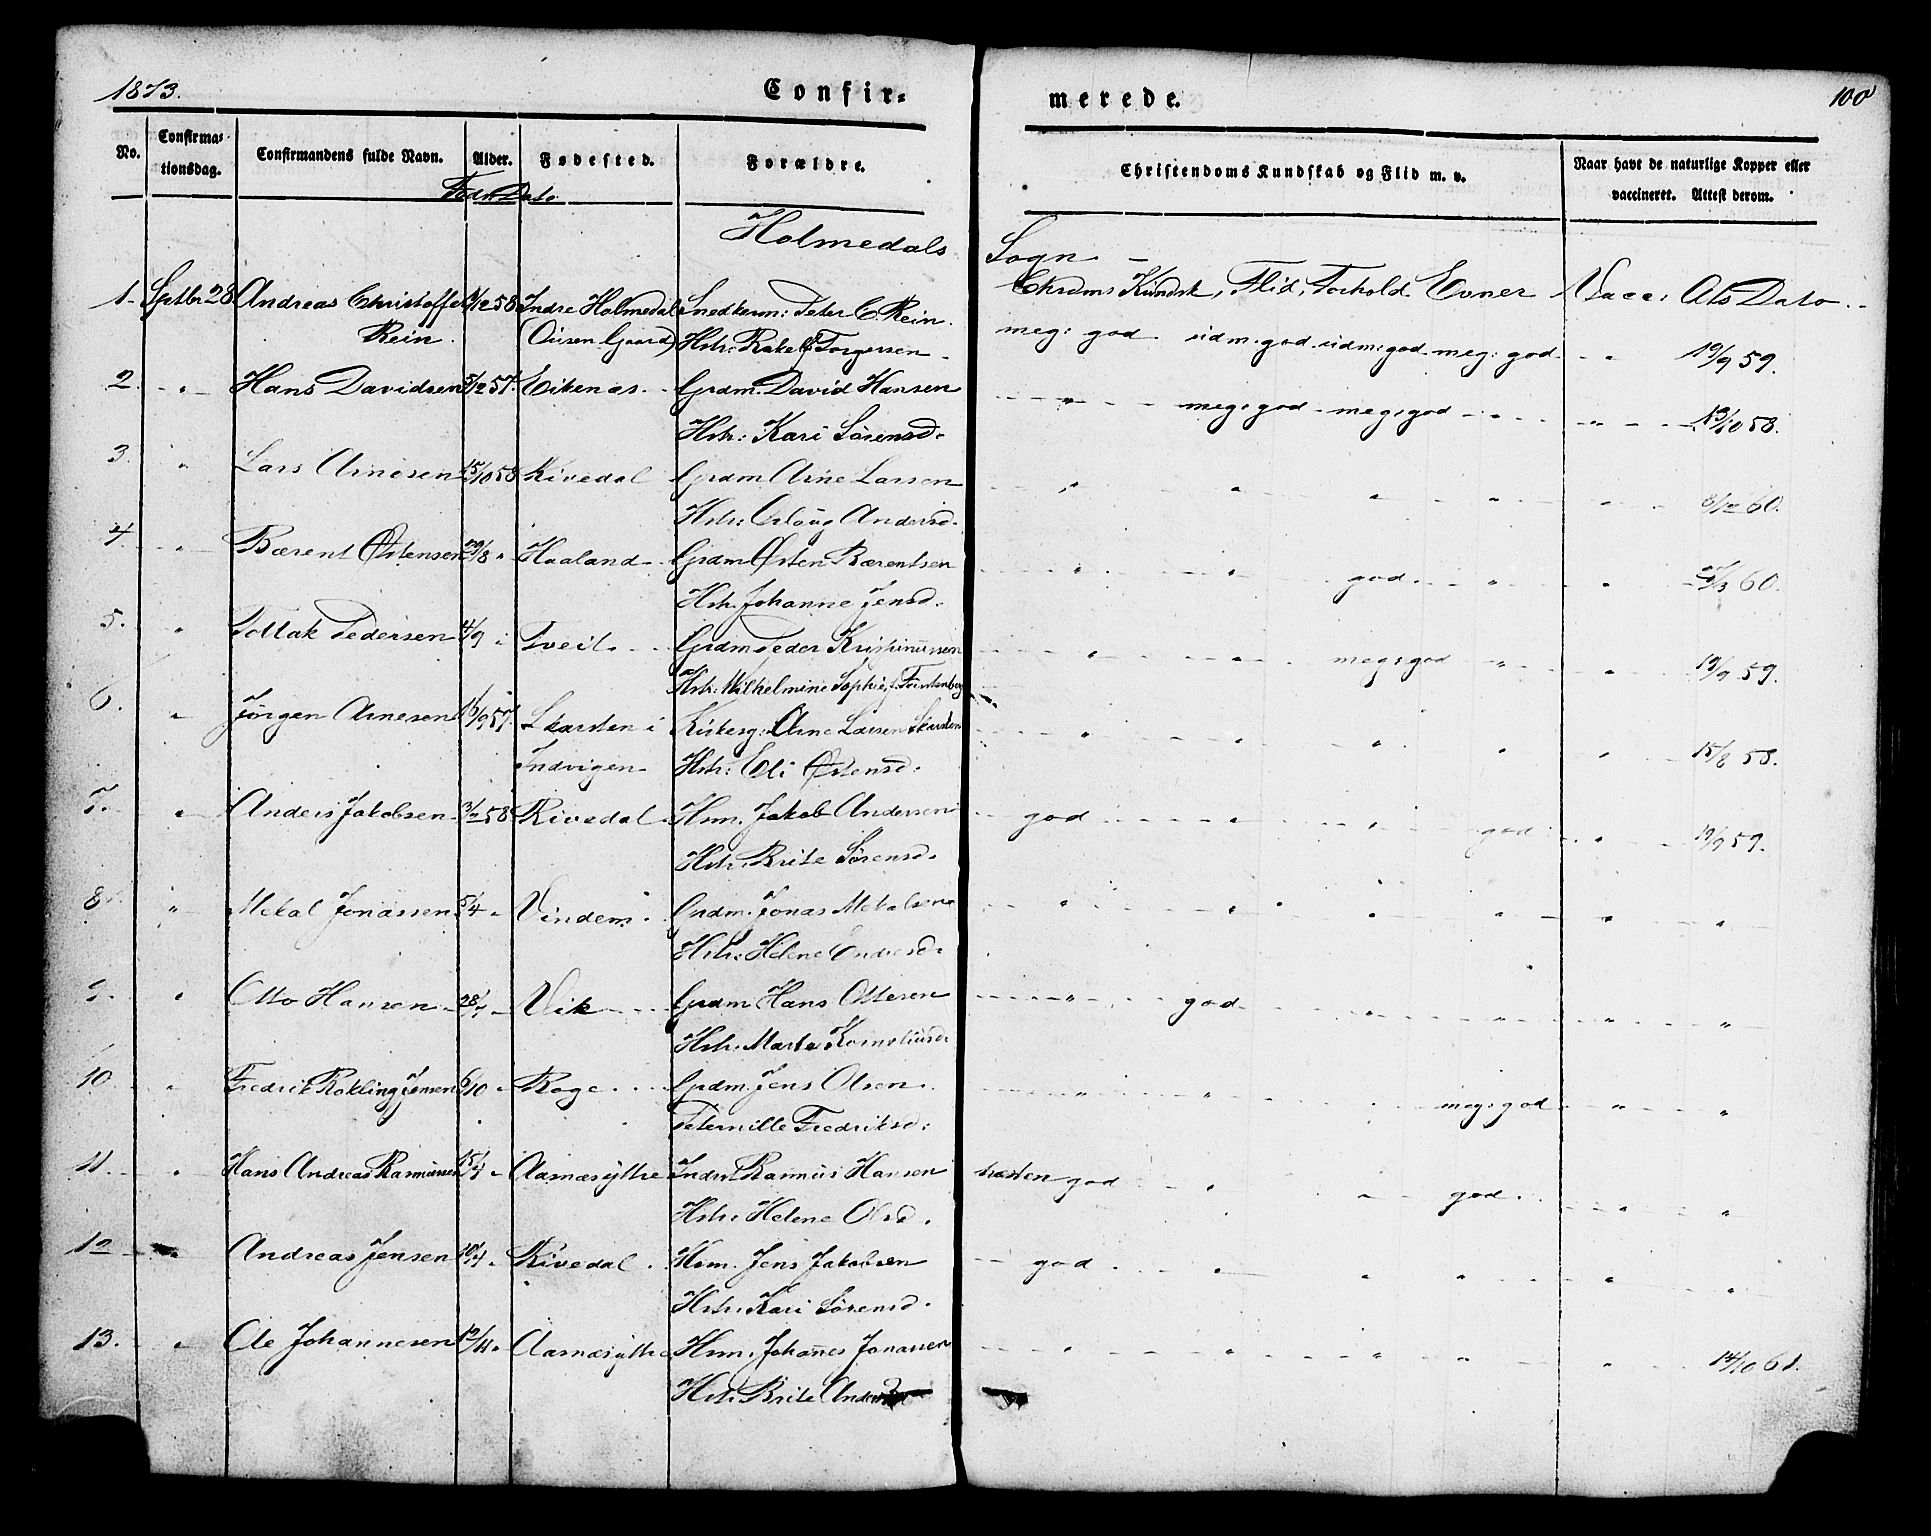 1873.
Confir=
merede.
100
No.
Confirma=
tionsdag.
Confirmandens fulde Navn.
Alder.
Fødested.
Forældre.
Christendoms Kundskab og Flid m. v.
Naar havt de naturlige Kopper eller
vaccineret. Attest derom.
Føds Dato
Holmedals Sogn
Chrdms Kundsk, Flid, Forhold Evner Vacc: Ats Dato
1. Sptbr 28 Andreas Christoffer 58 Indre Holmedal Snedkerm: Peter C. Rein.
Rein. Hstr: Rakel Torgersen
meg: god udm. god udm: god meg: god " 19/9 59.
2. " Hans Davidsen 5/12 57. Eikenæs Grdm. David Hansen
Hstr: Kari Sörensd.
" meg: god meg: god " " 13/10 58.
3. " Lars Arnesen 15/10 58 Rivedal Grdm Arne Larsen
Hstr: Andersd.
" " " " " 60.
4. " Bærent Østensen 29/8 " Haaland Grdm Østen Bærentsen
Hstr. Johanne Jensd.
" " god " " 60.
5. " Tollak Pedersen 4/9 " Tveit Grdm Peder Kristinussen
Hstr: Wilhelmine Sophie
" " meg: god " " 19/9 59.
6. " Jörgen Arnesen 16/9 57. Skarsten i Arne Larsen Skarsten
Indvigen Hstr: Eli Østensd.
" " " " " 15/8 58.
7. " Anders Jakobsen 58 Rivedal Hsm. Jakob Andersen
Hstr. Brite Sörensd.
god " " god " 19/9 59.
8. " Mekal Jonassen 5/4 " Vindem Grdm. Jonas Mekalsen
Hstr: Helene
" " " " " "
9. " Otto Hansen 28/7 " Vik Grdm Hans Ottesen
Hstr. Marta Korneliusd
" god " " " "
10. " Fredrik Rokling Jensen 6/10 " Grdm. Jens Olsen
Peternille Fredriksd:
" " " meg: god " "
11. " Hans Andreas Rasmussen 15/4 " Aarnæsyttre Inderst Rasmus Hansen
Hstr. Helene Olsd.
næsten god " " god " "
12 Andreas Jensen 10/4 " Rivedal Hsm. Jens Jakobsen
Hstr. Kari Sörensd.
god " " " " "
13. " Ole Johannesen 12/11 " Aarnæsyttre Hsm. Johannes Jonassen
Hstr. Brite
" " " " " 14/10 61.